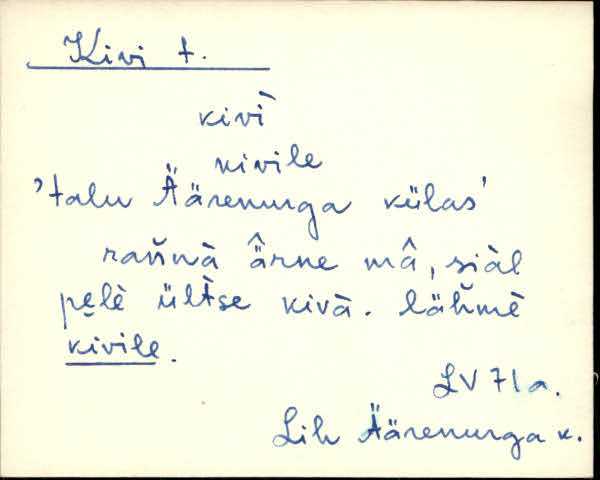 Kivi t.
kivì
kivile
'talu Äärenurga külas'
rañnà ârne mâ, siàl
pelè ültse kivà. lähmè
kivile.
LV 71a.
Lih Äärenurga k.